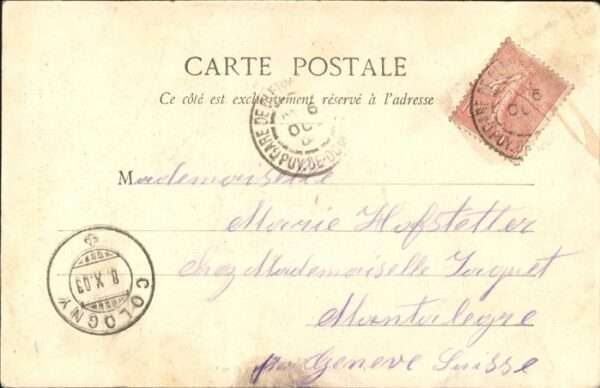 CARTE POSTALE
Ce côté est exclusivement réservé à l'adresse
GARE DE
6
OC
PUY-DE-D
GARE DE
6
OC
PUY-D
Mademoiselle
Marie Hofstetter
chez Mademoiselle Jaquet
Montalegre
par Geneve Suisse
COLOGNY
8.X.03